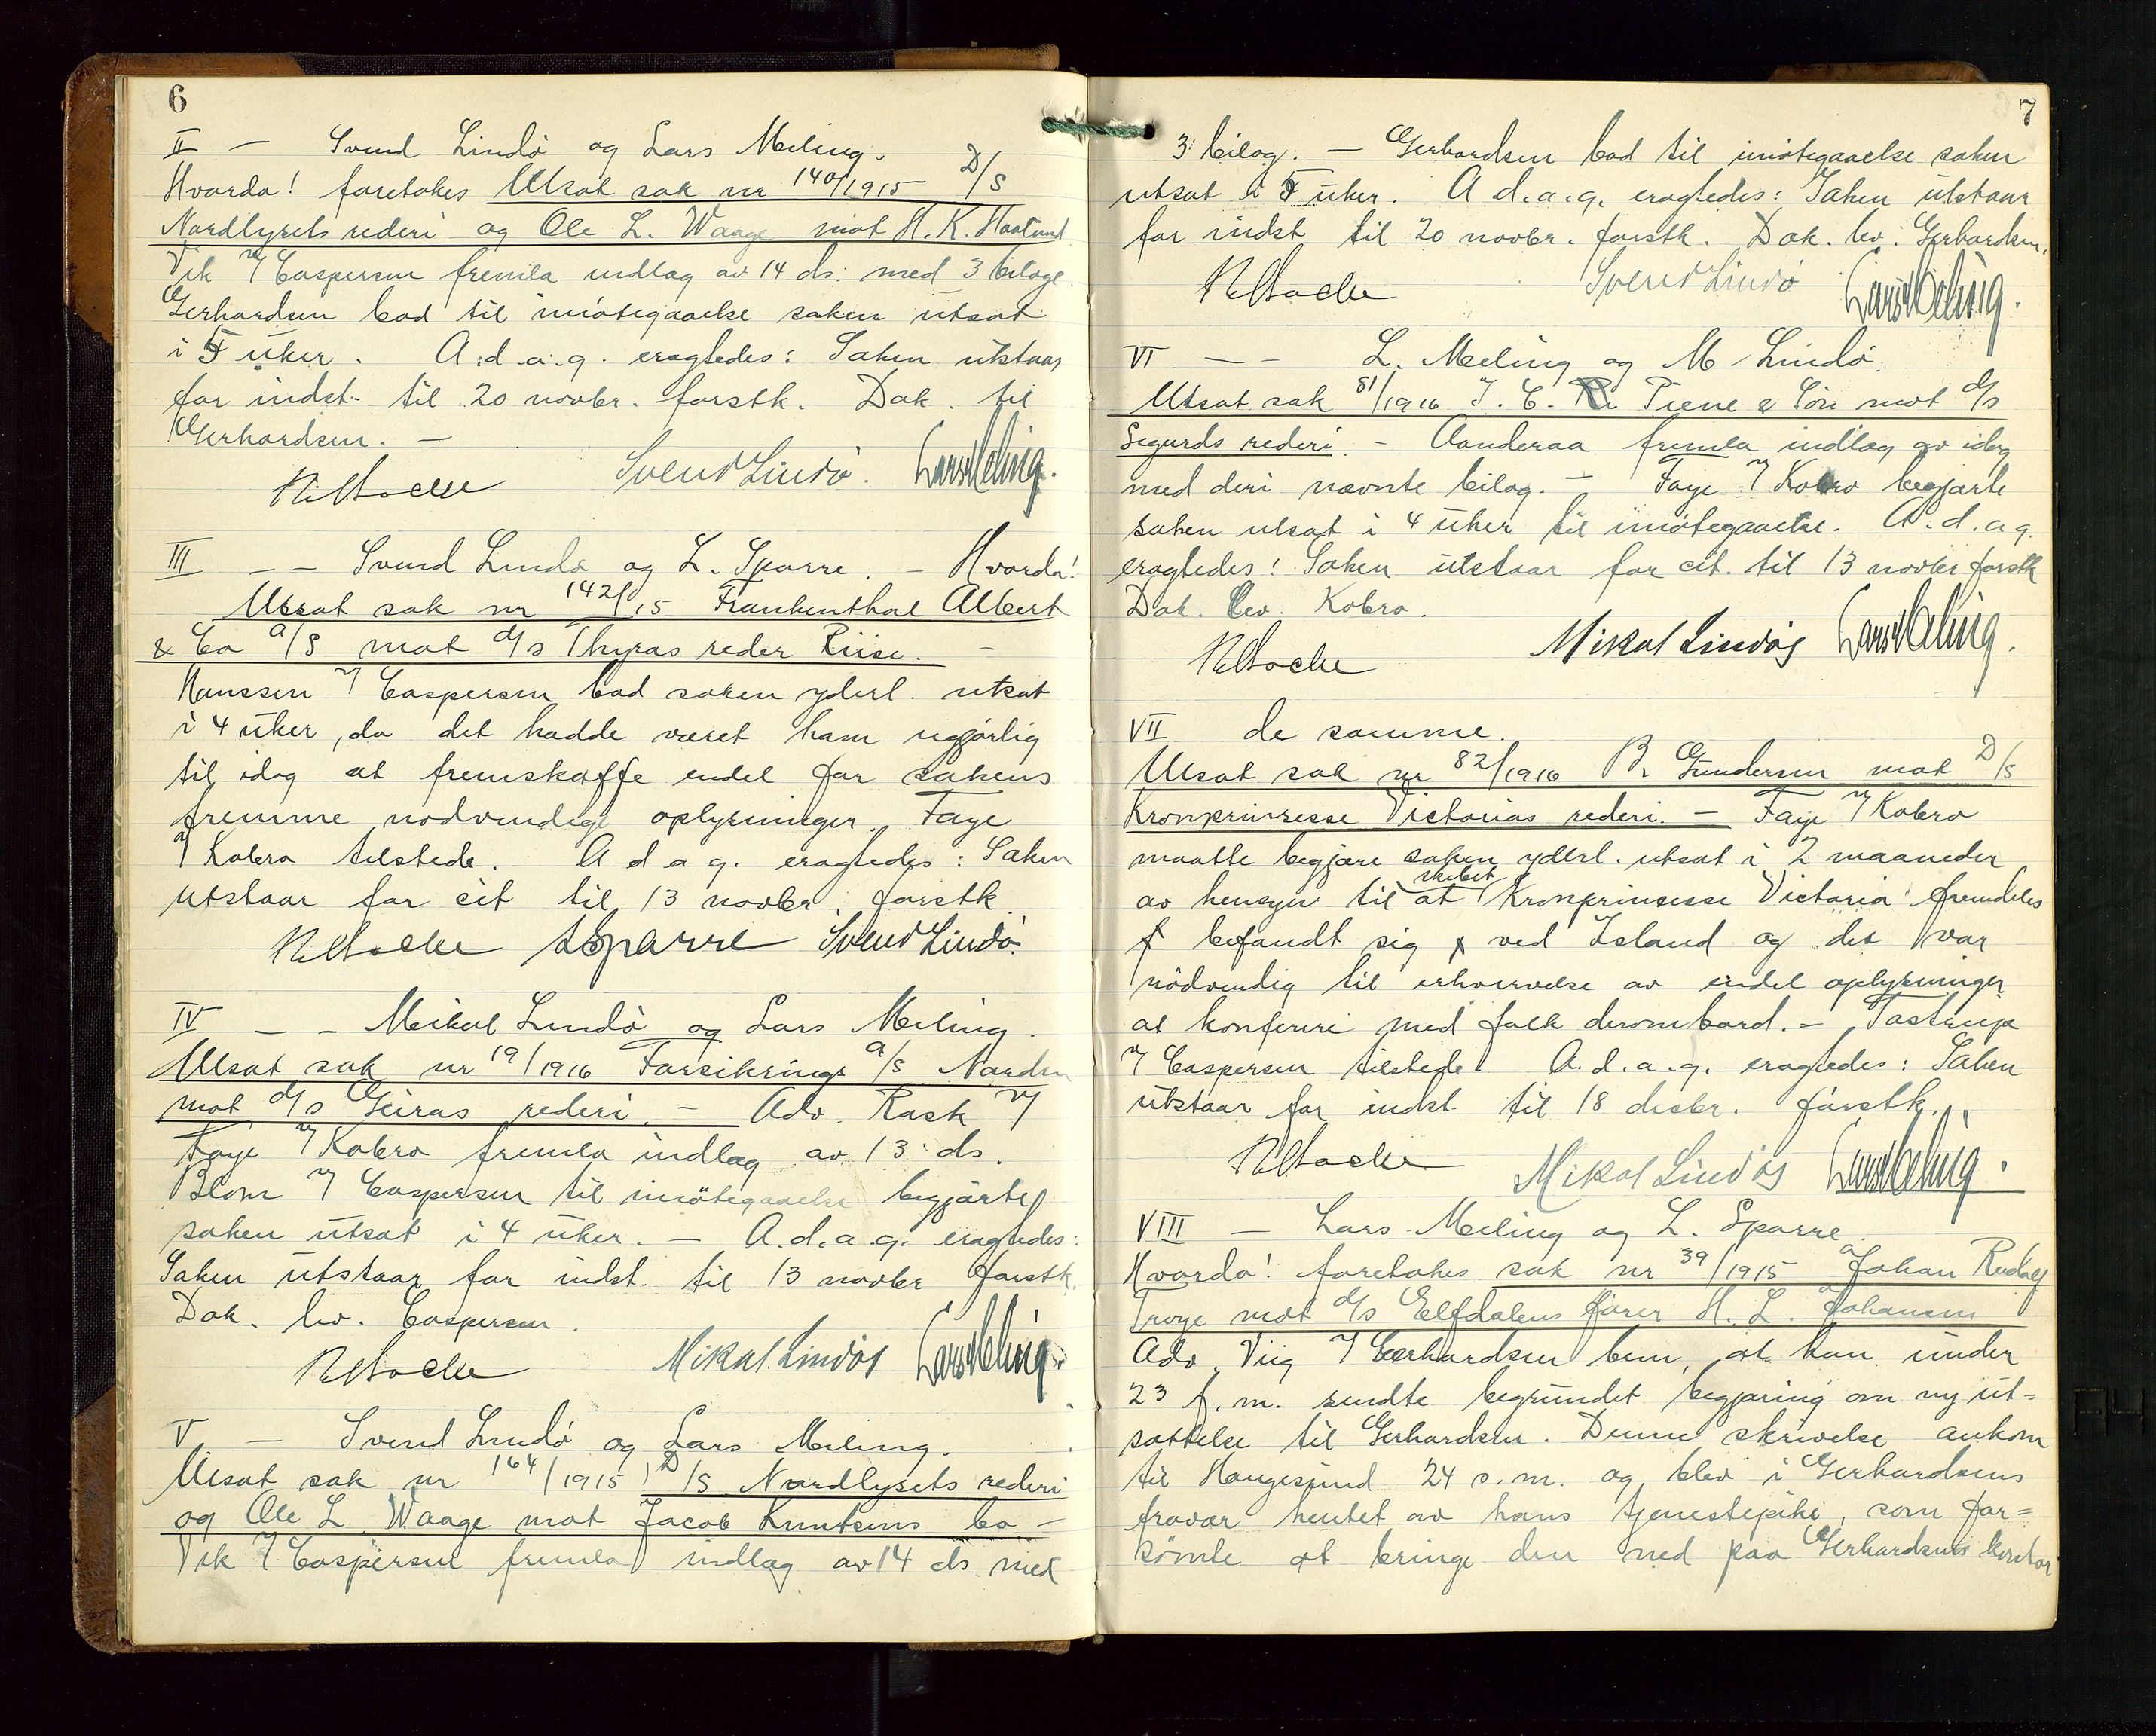 6
II — Svend Lindö og Lars Meling.
Hvorda! foretokes Utsat sak nr 140/1915 D/S
Nordlysets rederi og Ole L. Waage mot H. K.
Vik v/ Caspersen fremla indlæg av 14 ds. med 3 bilage.
Gerhardsen bad til imötegaaelse saken utsat
i 5 uker. A. d. a. g. eragtedes: Saken utstaar
for indst. til 20 novbr. førstk. Dok. til
Gerhardsen. —
Svend Lindö. Lars Meling.
III — — Svend Lindö og L. Sparre. — Hvorda!
Utsat sak nr 142/15 Frankenthal Albert
& Co a/s mot d/s Thyras reder Riise. —
Hanssen v/ Caspersen bad saken yderl. utsat
i 4 uker, da det hadde været ham ugjörlig
til idag at fremskaffe endel for sakens
fremme nödvendige oplysninger. Faye
v/ Kobro tilstede. A d a g. eragtedes: Saken
utstaar for cit til 13 novbr. førstk.
L Sparre Svend Lindö.
IV — — Mikal Lindö og Lars Meling.
Utsat sak nr 19/1916 Forsikrings a/s Norden
mot d/s Geiras rederi. — Adv. Rask v/
Faye v/ Kobro fremla indlæg av 13 ds.
Blom v/ Caspersen til imötegaaelse begjærte
saken utsat i 4 uker. — A. d. a. g. eragtedes:
Saken utstaar for indst. til 13 novbr førstk.
Dok. lev. Caspersen.
Mikal Lindøs Lars Meling.
V — Svend Lindö og Lars Meling.
Utsat sak nr 164/1915 D/S Nordlysets rederi
og Ole L. Waage mot Jacob Knutsens bo —
Vik v/ Caspersen fremla indlæg av 14 ds med
7
3 bilag. — Gerhardsen bad til imötegaaelse saken
utsat i 5 uker. A d. a. g. eragtedes: Saken utstaar
for indst til 20 novbr. førstk. Dok. lev. Gerhardsen.
Svend Lindö Lars Meling.
VI — — L. Meling og M Lindö.
Utsat sak 81/1916 I. C. Piene & Sön mot d/s
Segurds rederi. — Aanderaa fremla indlæg av idag
med deri nævnte bilag. — Faye v/ Kobro begjærte
saken utsat i 4 uker til imötegaaelse. A. d. a g.
eragtedes: Saken utstaar for cit. til 13 novbr førstk
Dok. lev. Kobro.
Mikal Lindøs Lars Meling.
VII de samme.
Utsat sak nr 82/1916 B. Gundersen mot D/s
Kronprinsesse Victorias rederi. — Faye v/ Kobro
maatte begjære saken yderl. utsat i 2 maaneder
av hensyn til at skibet Kronprinsesse Victoria fremdeles
befandt sig ved Island og det var
nödvendig til erhvervelse av endel oplysninger
at konferere med folk derombord. — Tastrup
v/ Caspersen tilstede. A. d. a. g. eragtedes: Saken
utstaar for indst. til 18 decbr. førstk.
Mikal Lindøs Lars Meling.
VIII — Lars Meling og L. Sparre.
Hvorda! foretokes sak nr 39/1915 Johan Rudolf
Troye mot d/s Elfdalens förer H. L. Johansen
Adv. Viig v/ Gerhardsen bem. at han under
23 f. m. sendte begrundet begjæring om ny ut-
sættelse til Gerhardsen. Denne skrivelse ankom
til Haugesund 24 s. m. og blev i Gerhardsens
fravær hentet av hans tjenestepike, som for-
sömte at bringe den ned paa Gerhardsens kontor